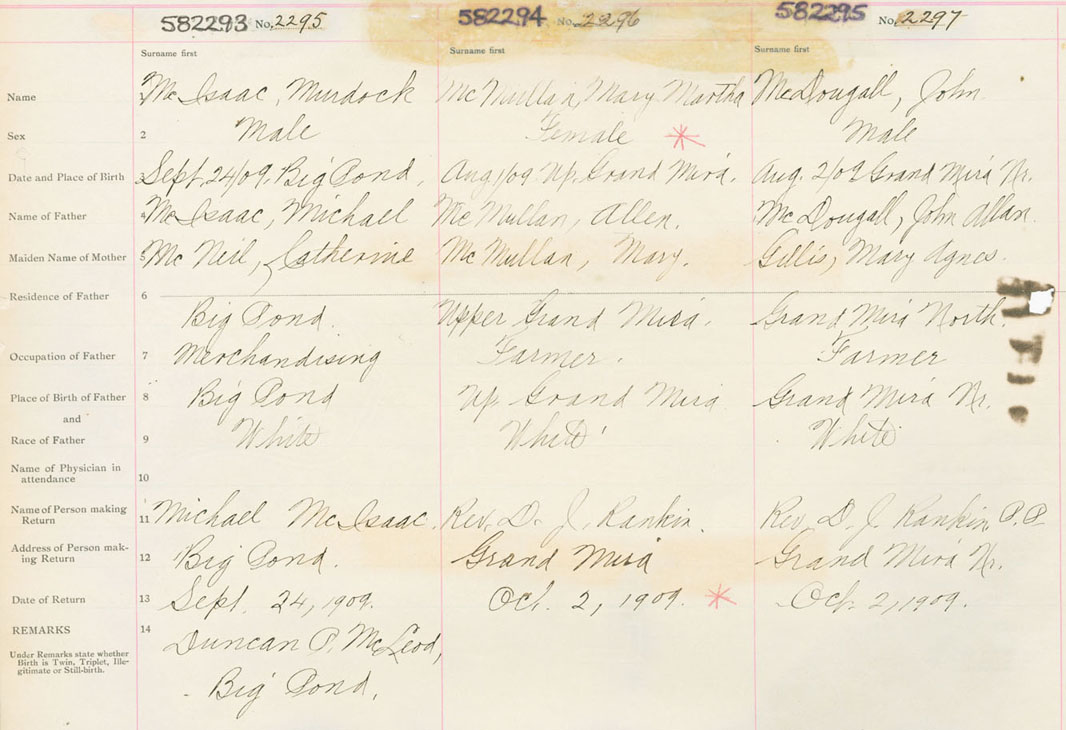 582293 No. 2295 582294 No. 2296 582295 No. 2297
Surname first Surname first Surname first
Name 1 Mc Isaac, Murdock Mc Mullan, Mary Martha McDougall, John
Sex 2 Male Female * Male
Date and Place of Birth 3 Sept. 24/09, Big Pond, Aug 1/09 Up. Grand Mira. Aug. 2/09 Grand Mira Nr.
Name of Father 4 Mc Isaac, Michael Mc Mullan, Allen. Mc Dougall, John Allan.
Maiden Name of Mother 5 Mc Neil, Catherine Mc Mullan, Mary. Gillis, Mary Agnes.
Residence of Father 6
Big Pond. Upper Grand Mira. Grand Mira North.
Occupation of Father 7 Merchandising Farmer. Farmer
Place of Birth of Father 8 Big Pond Up. Grand Mira Grand Mira Nr.
and
Race of Father 9 White White White
Name of Physician in
attendance 10
Name of Person making
Return 11 Michael McIsaac. Rev. D. J. Rankin. Rev. D. J. Rankin P.P.
Address of Person mak-
ing Return 12 Big Pond. Grand Mira Grand Mira Nr.
Date of Return 13 Sept. 24, 1909. Oct. 2, 1909. * Oct. 2, 1909.
REMARKS 14 Duncan P. McLeod,
Under Remarks state whether
Birth is Twin, Triplet, Ille-
gitimate or Still-birth.
Big Pond.